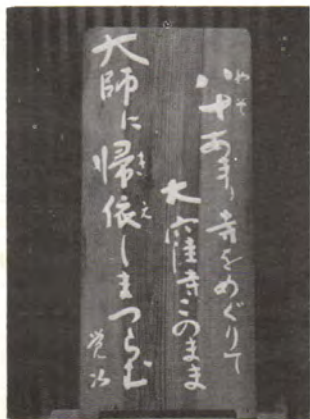 八十あまり寺をめぐりて
大窪寺このまま
大師に帰依しまつらむ